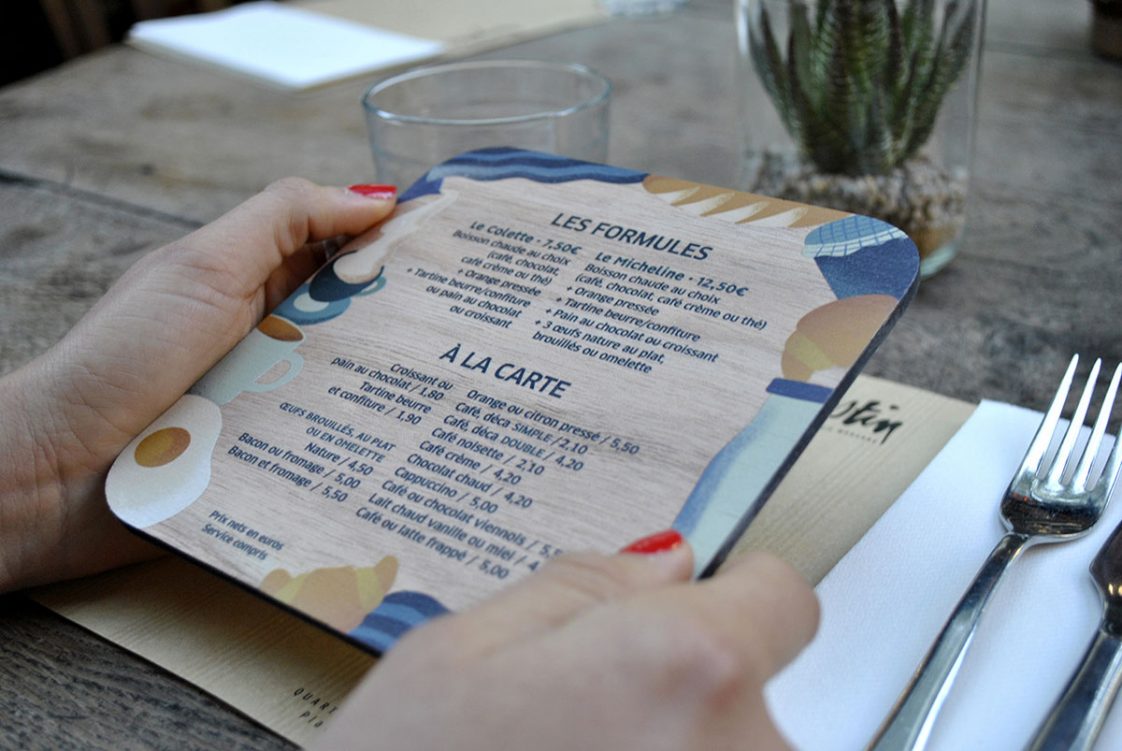 LES FORMULES
Le Colette - 7,50€
Boisson chaude au choix
(café, chocolat,
café crème ou thé)
+ Orange pressée
+ Tartine beurre/confiture
ou pain au chocolat
ou croissant
Le Micheline - 12,50€
Boisson chaude au choix
(café, chocolat, café crème ou thé)
+ Orange pressée
+ Tartine beurre/confiture
+ Pain au chocolat ou croissant
+ 3 œufs nature au plat,
brouillés ou omelette
À LA CARTE
Croissant ou
pain au chocolat / 1,80
Tartine beurre
et confiture / 1,90
ŒUFS BROUILLÉS, AU PLAT
OU EN OMELETTE
Nature / 4,50
Bacon ou fromage / 5,00
Bacon et fromage / 5,50
Orange ou citron pressé / 5,50
Café, déca SIMPLE / 2,10
Café, déca DOUBLE / 4,20
Café noisette / 2,10
Café crème / 4,20
Chocolat chaud / 4,20
Cappuccino / 5,00
Café ou chocolat viennois /
Lait chaud vanille ou miel /
Café ou latte frappé / 5,00
Prix nets en euros
Service compris